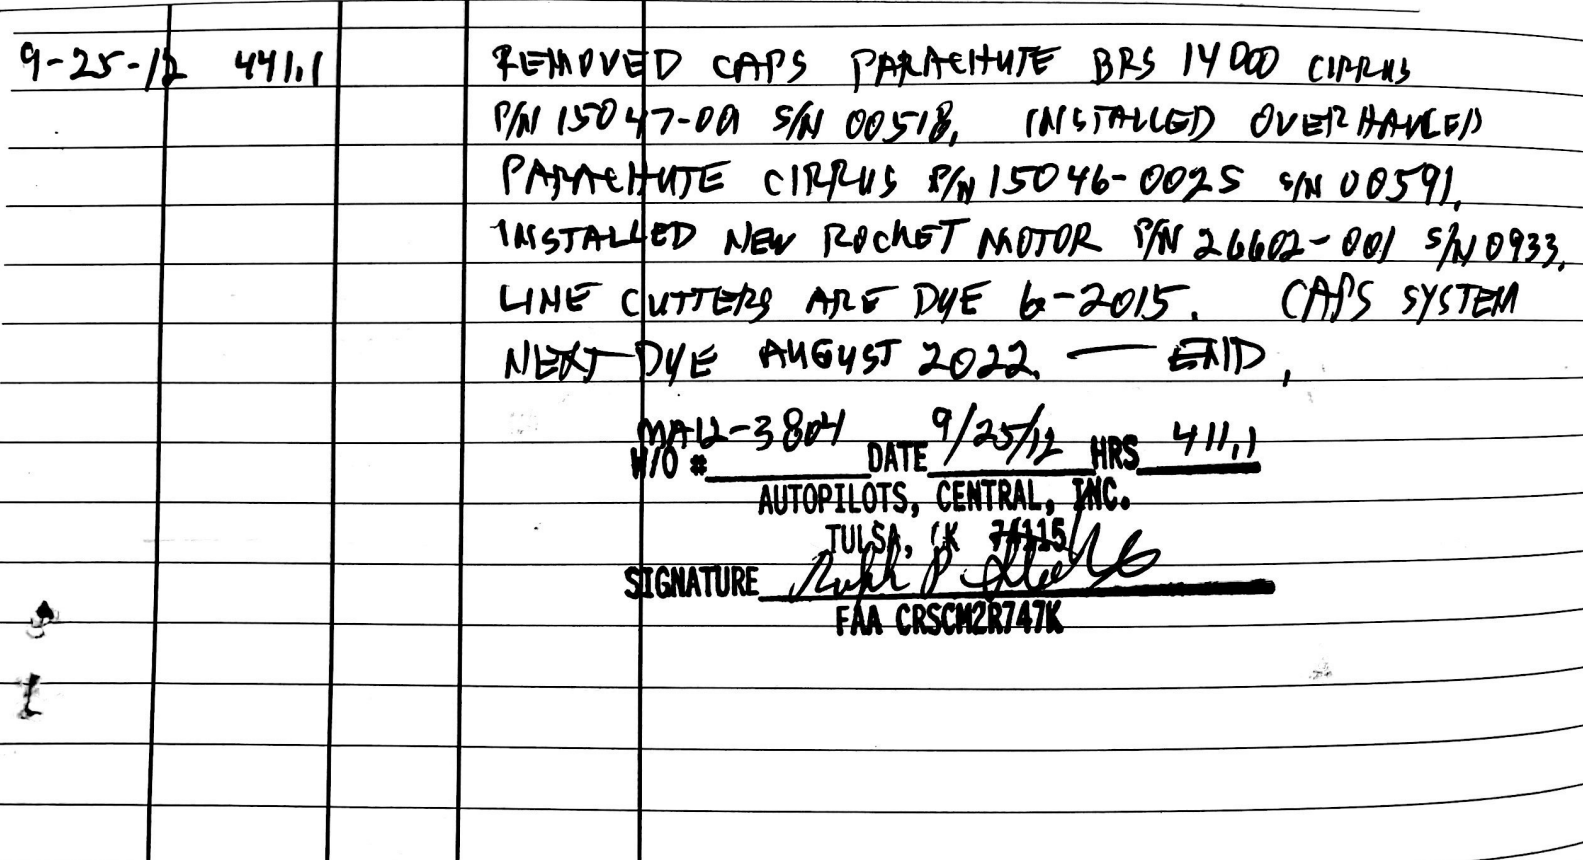 9-25-12 441.1 REMOVED CAPS PARACHUTE BRS 14000 CIRRUS
P/N 15047-00 S/N 00518, INSTALLED OVERHAULED
PARACHUTE CIRRUS P/N 15046-0025 S/N 00591.
INSTALLED NEW ROCKET MOTOR P/N 26602-001 S/N 0933.
LINE CUTTERS ARE DUE 6-2015. CAPS SYSTEM
NEXT DUE AUGUST 2022. — END.
W/O # MA12-3804 DATE 9/25/12 HRS 411.1
AUTOPILOTS, CENTRAL, INC.
TULSA, OK 74115
SIGNATURE
FAA CRSCM2R747K